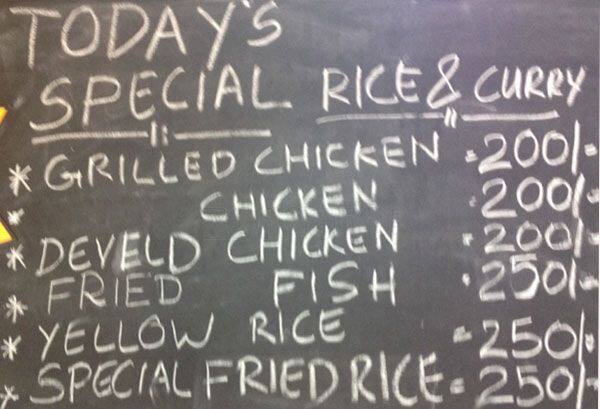 TODAY'S
SPECIAL RICE & CURRY
* GRILLED CHICKEN = 200/-
* CHICKEN - 200/-
* DEVELD CHICKEN - 200/-
* FRIED FISH - 250/-
* YELLOW RICE = 250/-
* SPECIAL FRIED RICE = 250/-